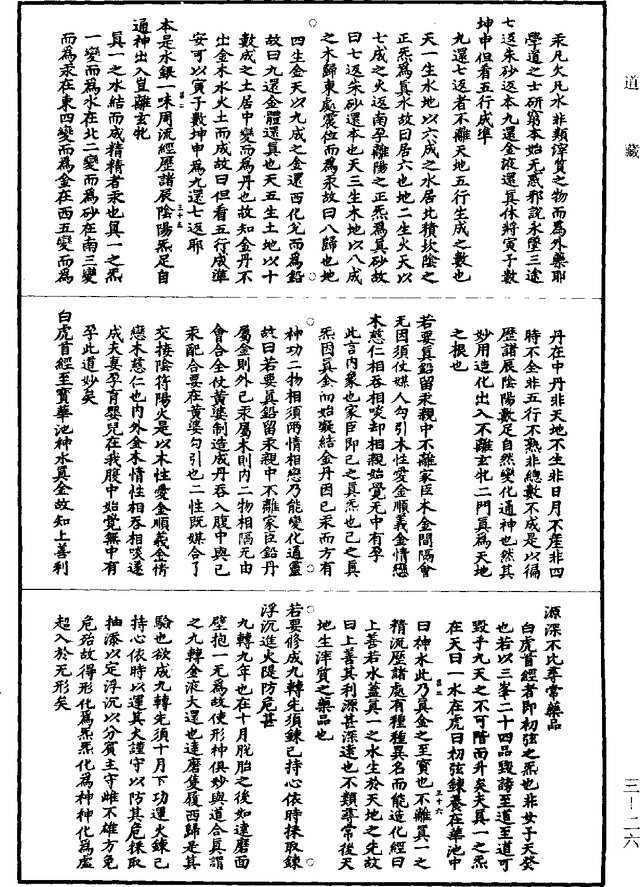 道藏
汞凡火凡水非類滓質之物而為外藥耶
學道之士研窮本始无惑邪說永墜三途
七返朱砂返本九還金液還真休將寅子數
坤申但看五行成準
九還七返者不離天地五行生成之數也
天一生水地以六成之水居北積坎陰之
正炁為真水故曰居六也地二生火天以
七成之火返南孕離陽之正炁為真砂故
曰七返朱砂還本也天三生木地以八成
之木歸東處震位而為汞故曰八歸也地
四生金天以九成之金還西化兌而為鉛
故曰九還金體還真也天五生土地以十
數成之土居中變而為丹也故知金丹不
出金木水火土而成故曰但看五行成準
安可以寅子數坤申為九還七返耶
本是水銀一味周流經歷諸辰陰陽炁足自
第二
三十五
通神出入豈離玄牝
真一之水結而成精精者汞也真一之炁
一變而為水在北二變而為砂在南三變
而為汞在東四變而為金在西五變而為
丹在中丹非天地不生非日月不產非四
時不全非五行不熟非總數不成是以徧
歷諸辰陰陽數足自然變化通神也然其
妙用造化出入不離玄牝二門真為天地
之根也
若要真鉛留汞親中不離家臣木金間隔會
无因須仗媒人勾引木性愛金順義金情戀
木慈仁相吞相啖却相親始覺无中有孕
此言內象也家臣即己之真炁也己之真
炁因真金而始凝結金丹因己汞而方有
神功二物相須兩情相戀乃能變化通靈
故曰若要真鉛留汞親中不離家臣鉛丹
屬金則外己汞屬木則內二物相隔元由
會合全仗黃婆制造成丹吞入腹中與己
汞配合要在黃婆勾引也二性既媒合了
交接陰符陽火是以木性愛金順義金情
戀木慈仁也內外金木情性相吞相啖遂
成夫妻孕育嬰兒在我腹中始覺無中有
孕此道妙矣
白虎首經至寶華池神水真金故知上善利
源深不比尋常藥品
白虎首經者即初弦之炁也非女子天癸
也若以三峯二十四品毀謗至道至道可
毀乎九天之不可階而升矣夫真一之炁
在天曰一水在虎曰初弦鍊養在華池中
第二
三十六
曰神水此乃真金之至寶也不離真一之
精流歷諸處有種種異名而能造化經曰
上善若水蓋真一之水生於天地之先故
曰上善其利源甚深遠也不類尋常後天
地生滓質之藥品也
若要修成九轉先須鍊己持心依時採取鍊
浮沉進火隄防危甚
九轉九年也在十月脫胎之後如達磨面
壁抱一无為故使形神俱妙與道合真謂
之九轉金液大還也達磨隻履西歸是其
驗也欲成九轉先須十月下功運火鍊己
持心依時以運其火謹守以防其危採取
抽添以定浮沉以分賓主守雌不雄方免
危殆故得形化為炁炁化為神神化為虛
超入於无形矣
三一二六